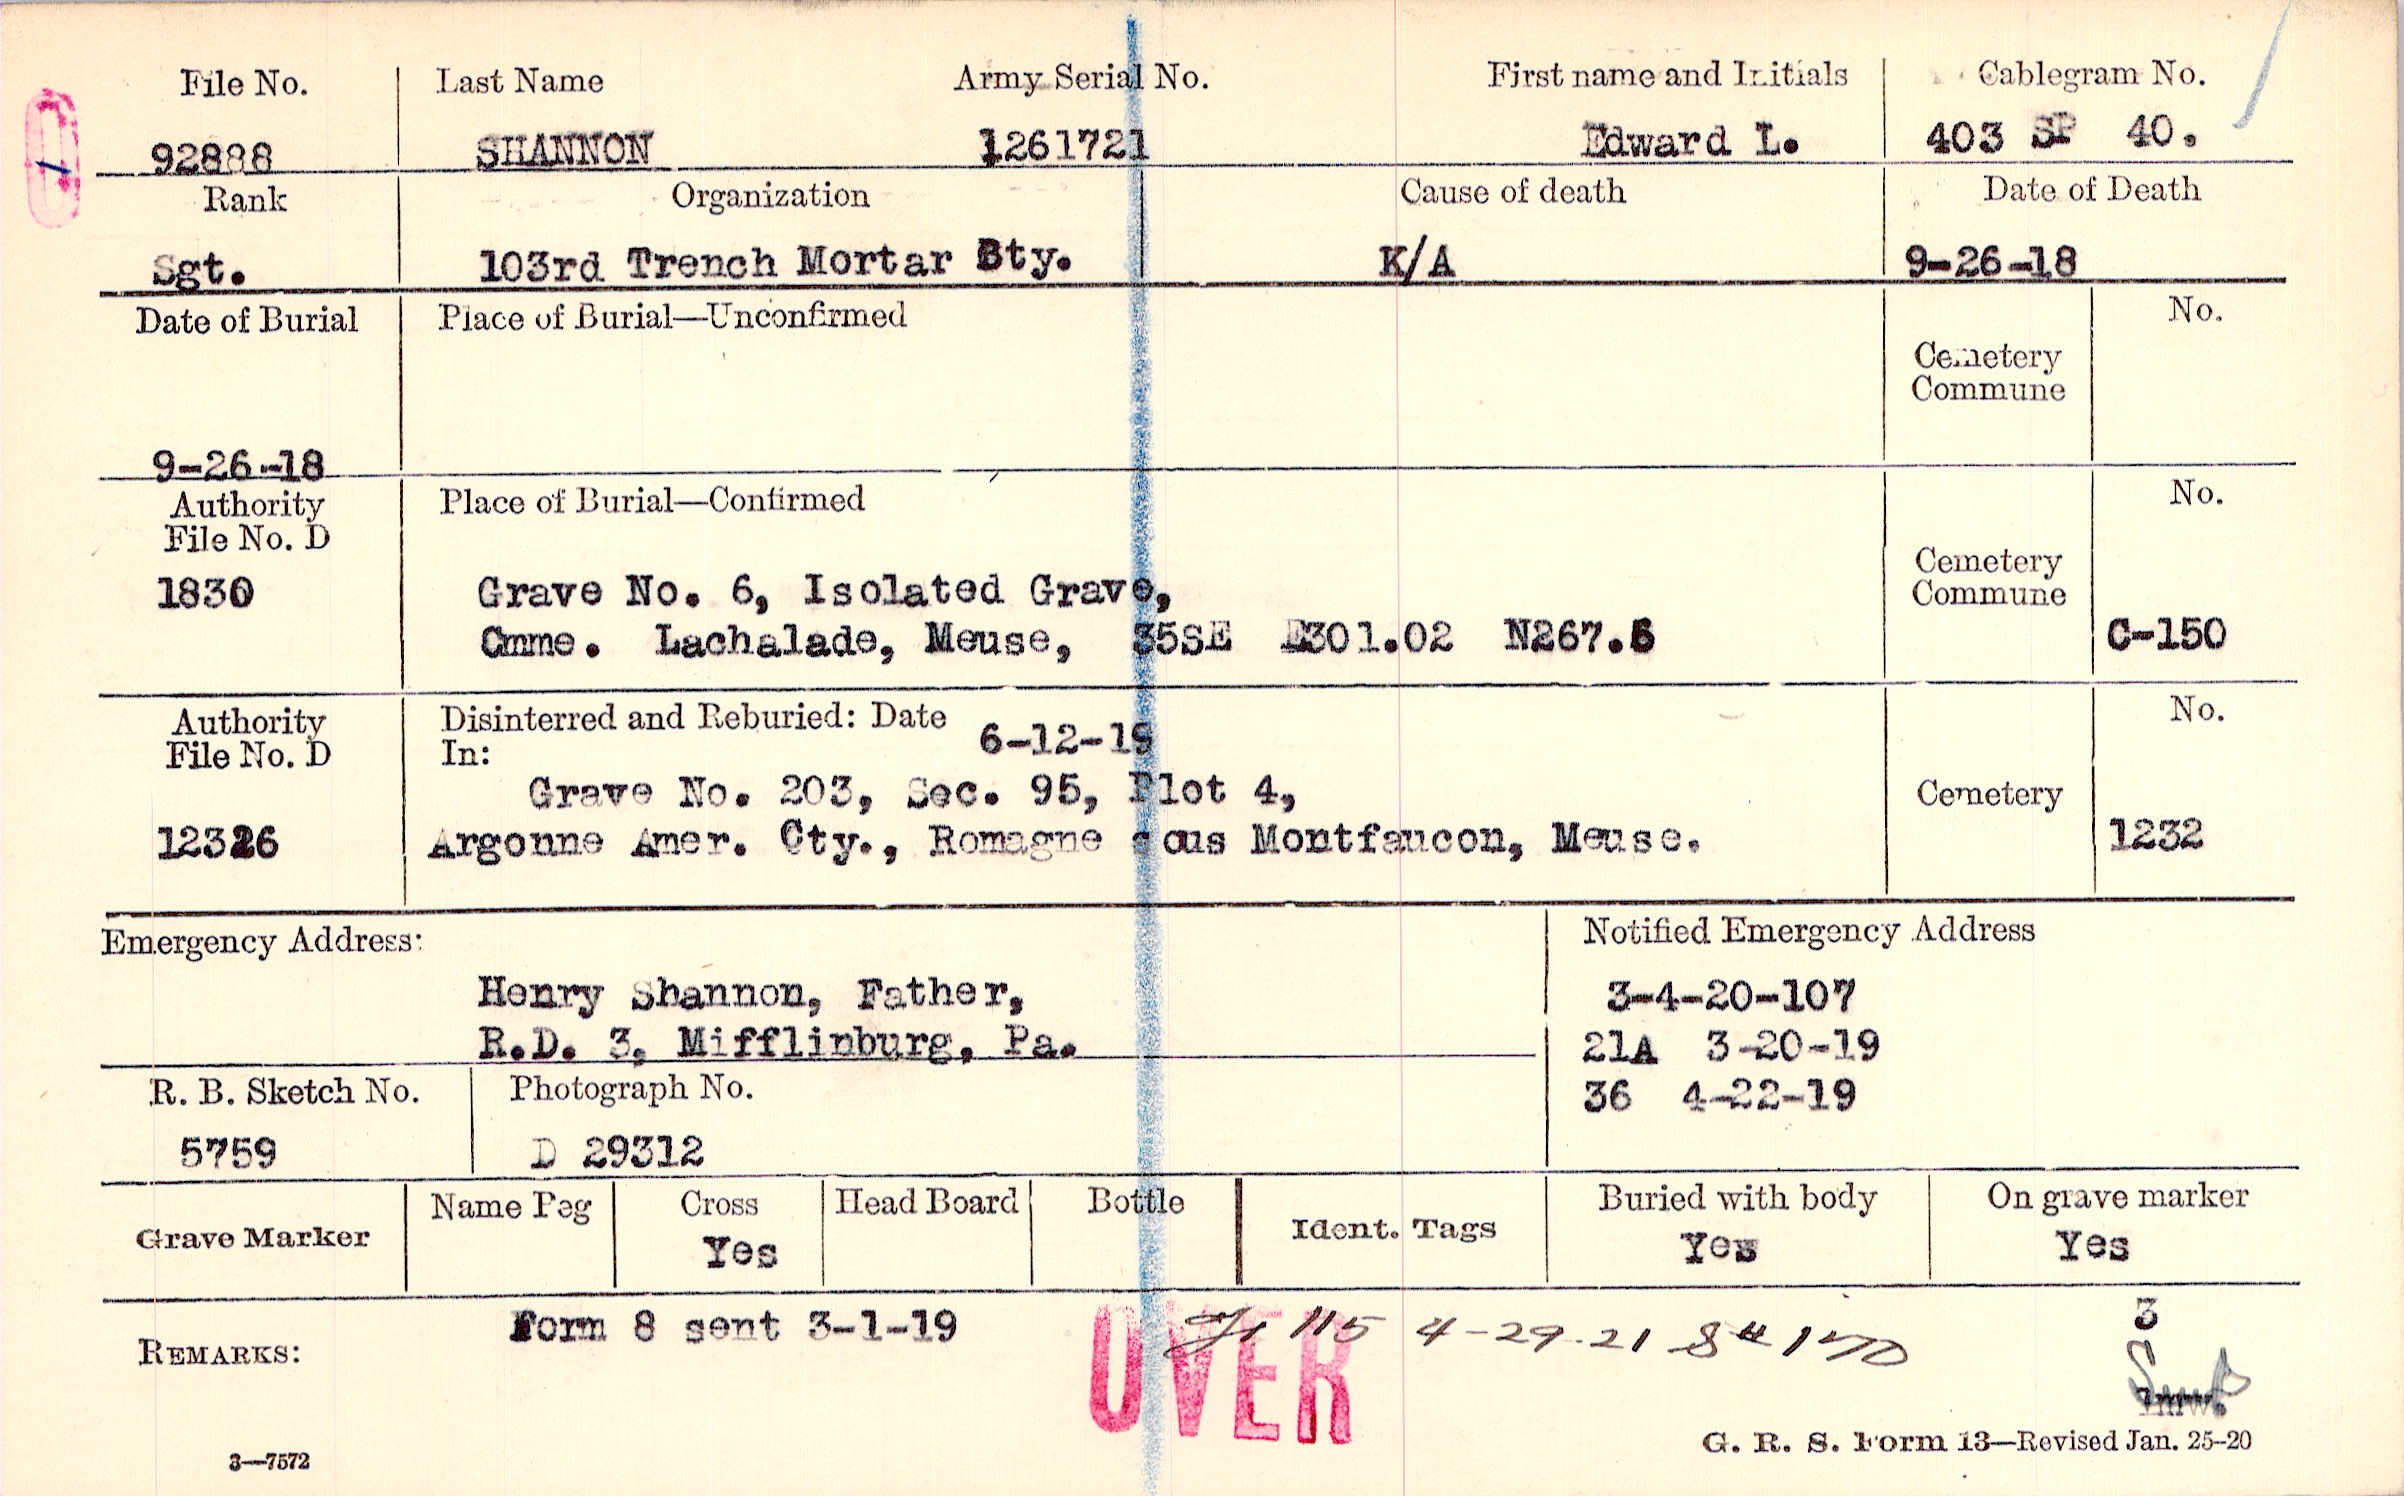 File No. Last Name Army Serial No. First name and Initials Cablegram No.
92888 SHANNON 1261721 Edward L. 403 SP 40.
Rank Organization Cause of death Date of Death
Sgt. 103rd Trench Mortar Bty. K/A 9-26-18
Date of Burial Place of Burial—Unconfirmed No.
Cemetery
Commune
9-26-18
Authority Place of Burial—Confirmed No.
File No. D
Cemetery
1830 Grave No. 6, Isolated Grave, Commune
Cmme. Lachalade, Meuse, 35SE E301.02 N267.6 C-150
Authority Disinterred and Reburied: Date 6-12-19 No.
File No. D In:
Grave No. 203, Sec. 95, Plot 4, Cemetery
12326 Argonne Amer. Cty., Romagne sous Montfaucon, Meuse. 1232
Emergency Address: Notified Emergency Address
Henry Shannon, Father, 3-4-20-107
R.D. 3, Mifflinburg, Pa. 21A 3-20-19
R. B. Sketch No. Photograph No. 36 4-22-19
5759 D 29312
Grave Marker Name Peg Cross Head Board Bottle Ident. Tags Buried with body On grave marker
Yes Yes Yes
REMARKS: Form 8 sent 3-1-19 115 4-29-21 3
OVER
3—7572 G. R. S. Form 13—Revised Jan. 25-20